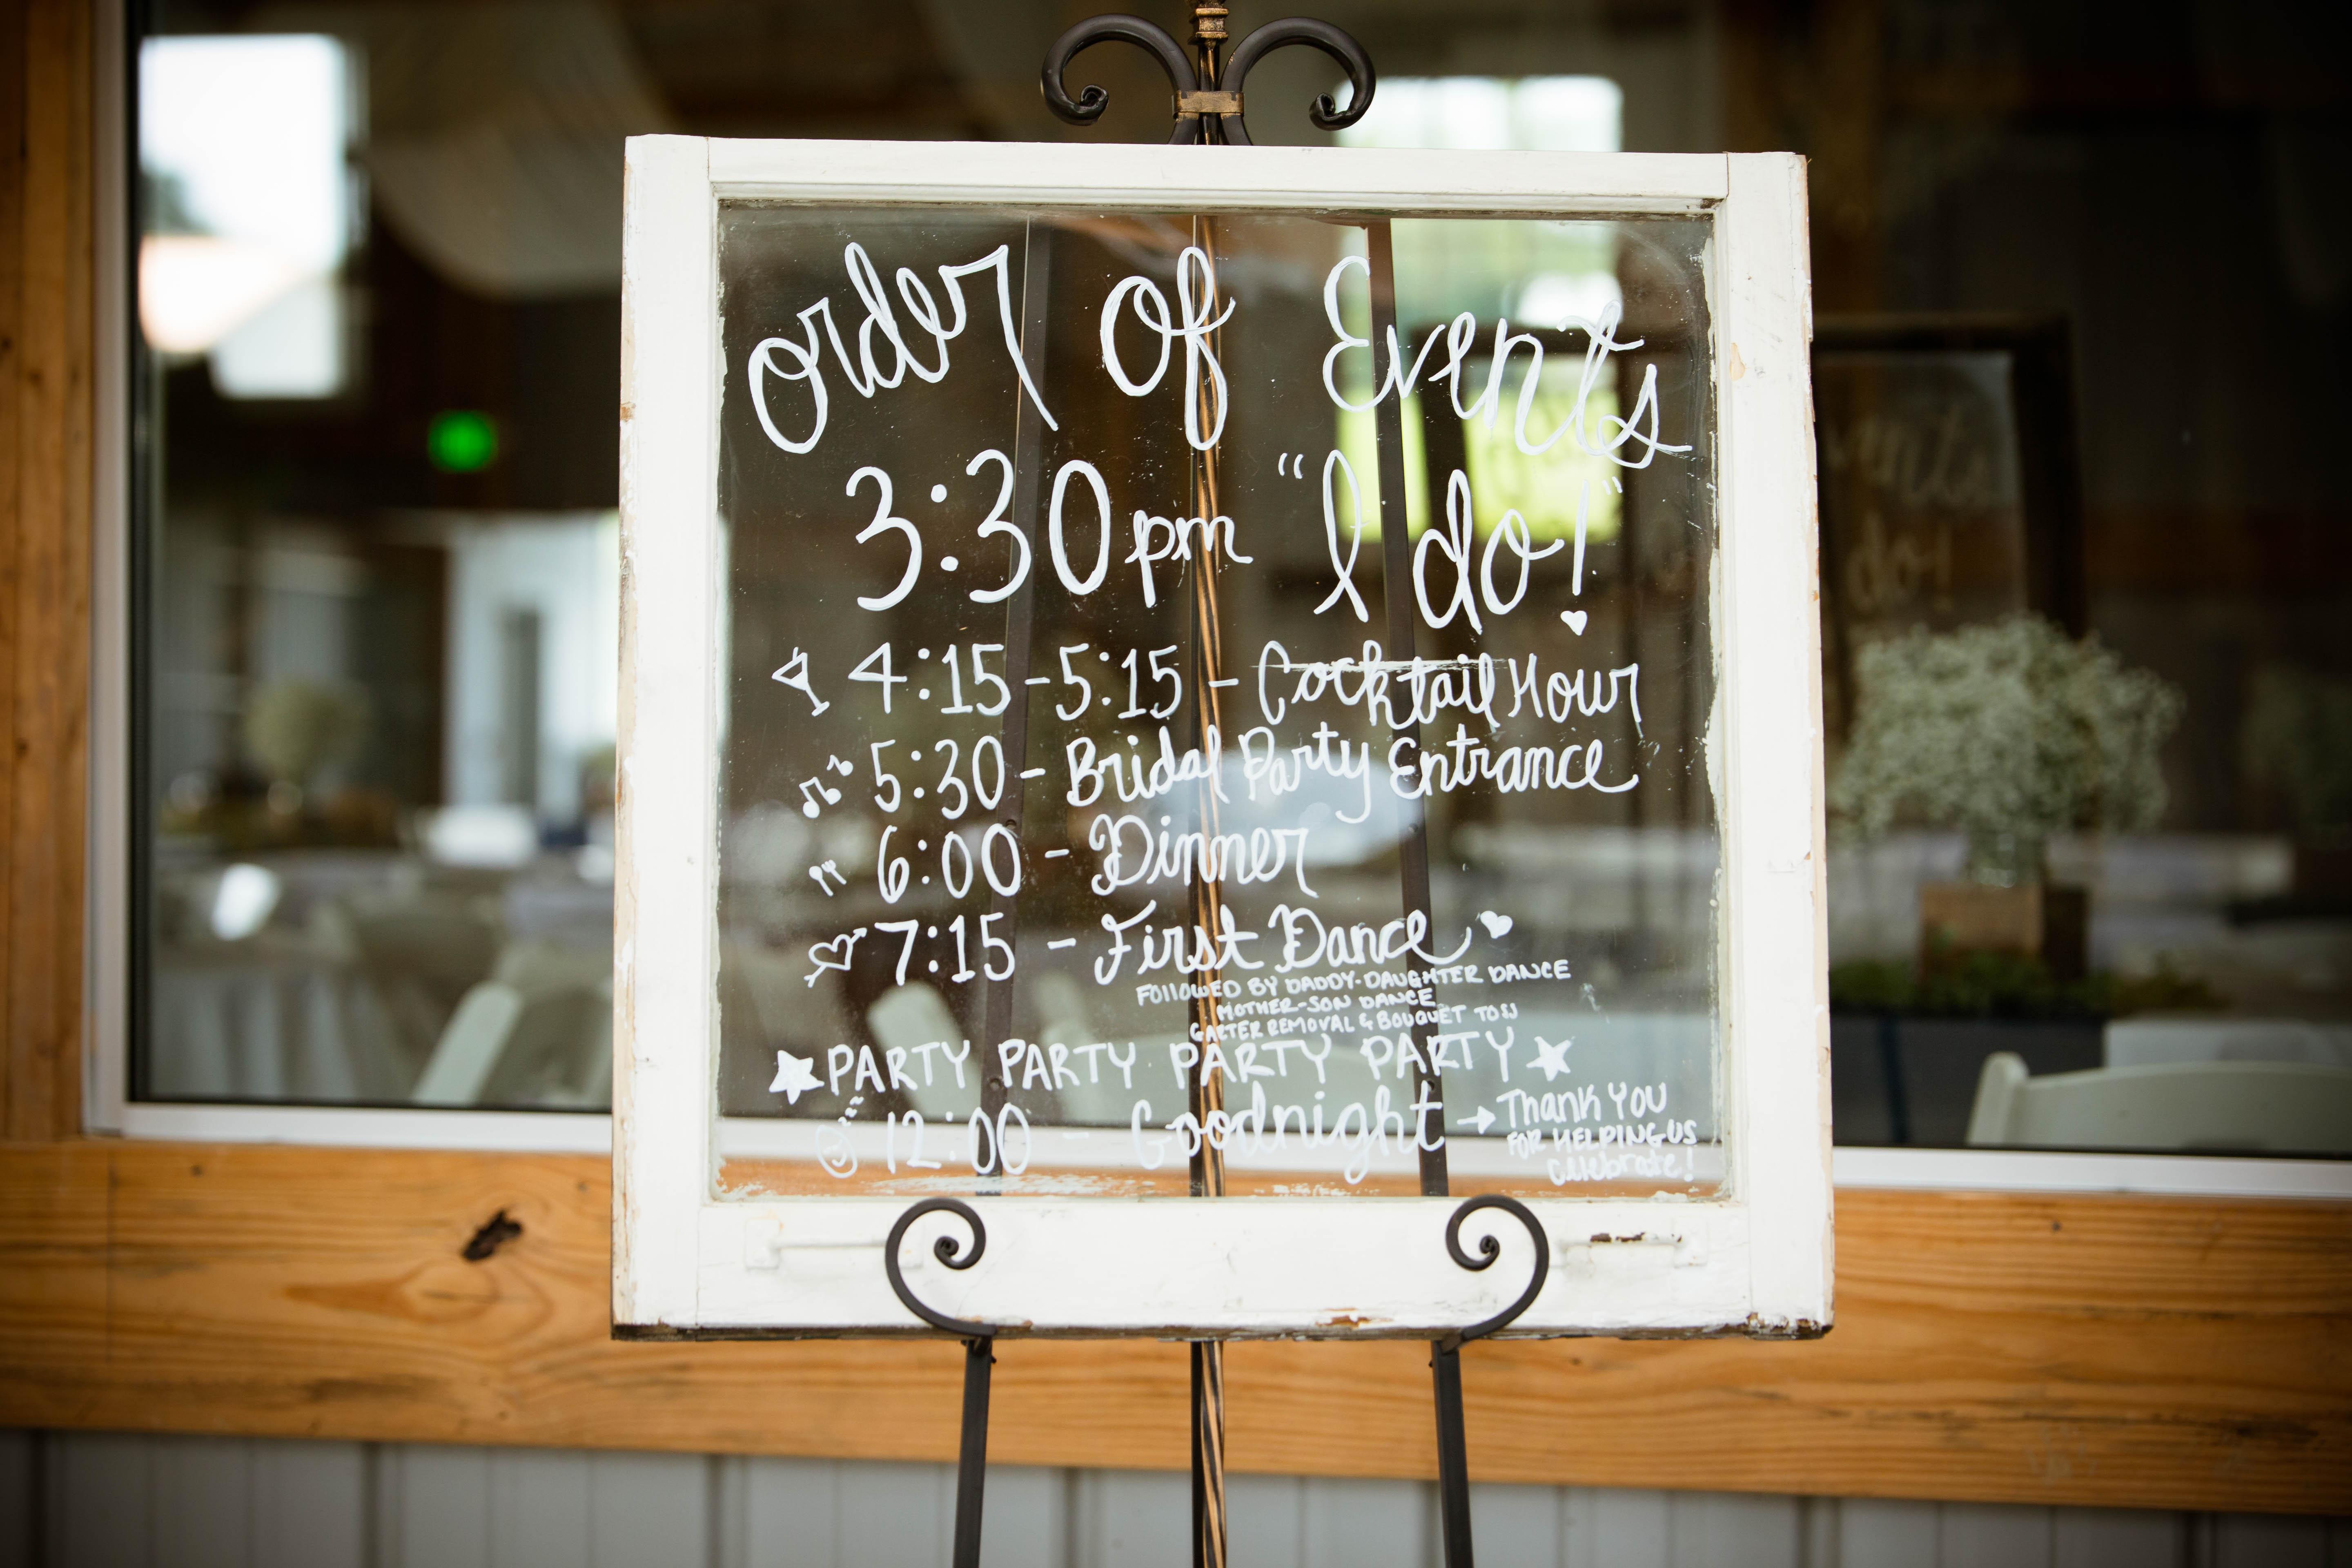 Order of Events
3:30pm "I do!"
4:15-5:15 - Cocktail Hour
5:30 - Bridal Party Entrance
6:00 - Dinner
7:15 - First Dance
FOLLOWED BY DADDY-DAUGHTER DANCE
MOTHER-SON DANCE
GARTER REMOVAL & BOUQUET TOSS
PARTY PARTY PARTY PARTY
12:00 - Goodnight → THANK YOU
FOR HELPING US
Celebrate!